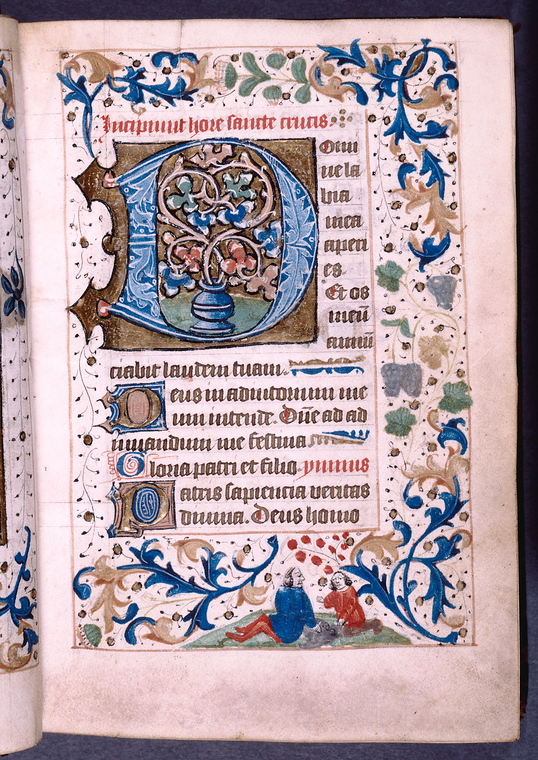 Incipiunt hore sancte crucis
Domi
ne la
bia
mea
aperi
es
Et os
meū
annū
ciabit laudem tuam
Deus in adiutorium me
um intende. Dñe ad ad
iuuandum me festina
Gloria patri et filio ymnus
Patris sapiencia veritas
diuina. Deus homo